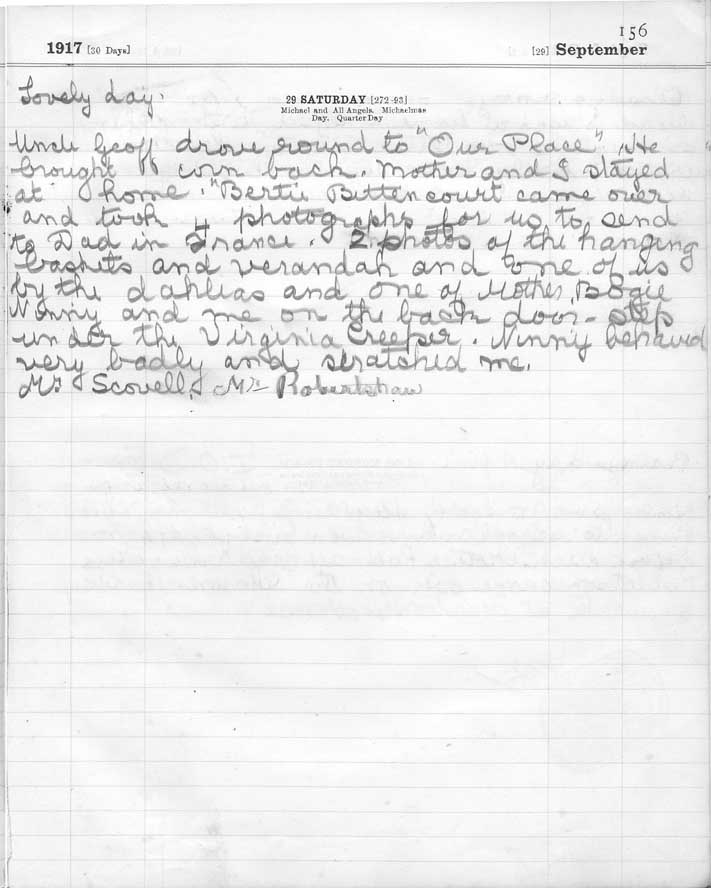 156
1917 [30 Days] [29] September
Lovely day.
29 SATURDAY [272-93]
Michael and All Angels. Michaelmas
Day. Quarter Day
Uncle Geoff drove round to "Our Place". He
brought corn back. Mother and I stayed
at home. "Bertie Bittencourt came over
and took 4 photographs for us to send
to Dad in France. 2 photos of the hanging
baskets and verandah and one of us
by the dahlias and one of Mother, Bogie
Ninny and me on the back door-step
under the Virginia Creeper. Ninny behaved
very badly and scratched me.
Mr Scovell, Mr Robertshaw